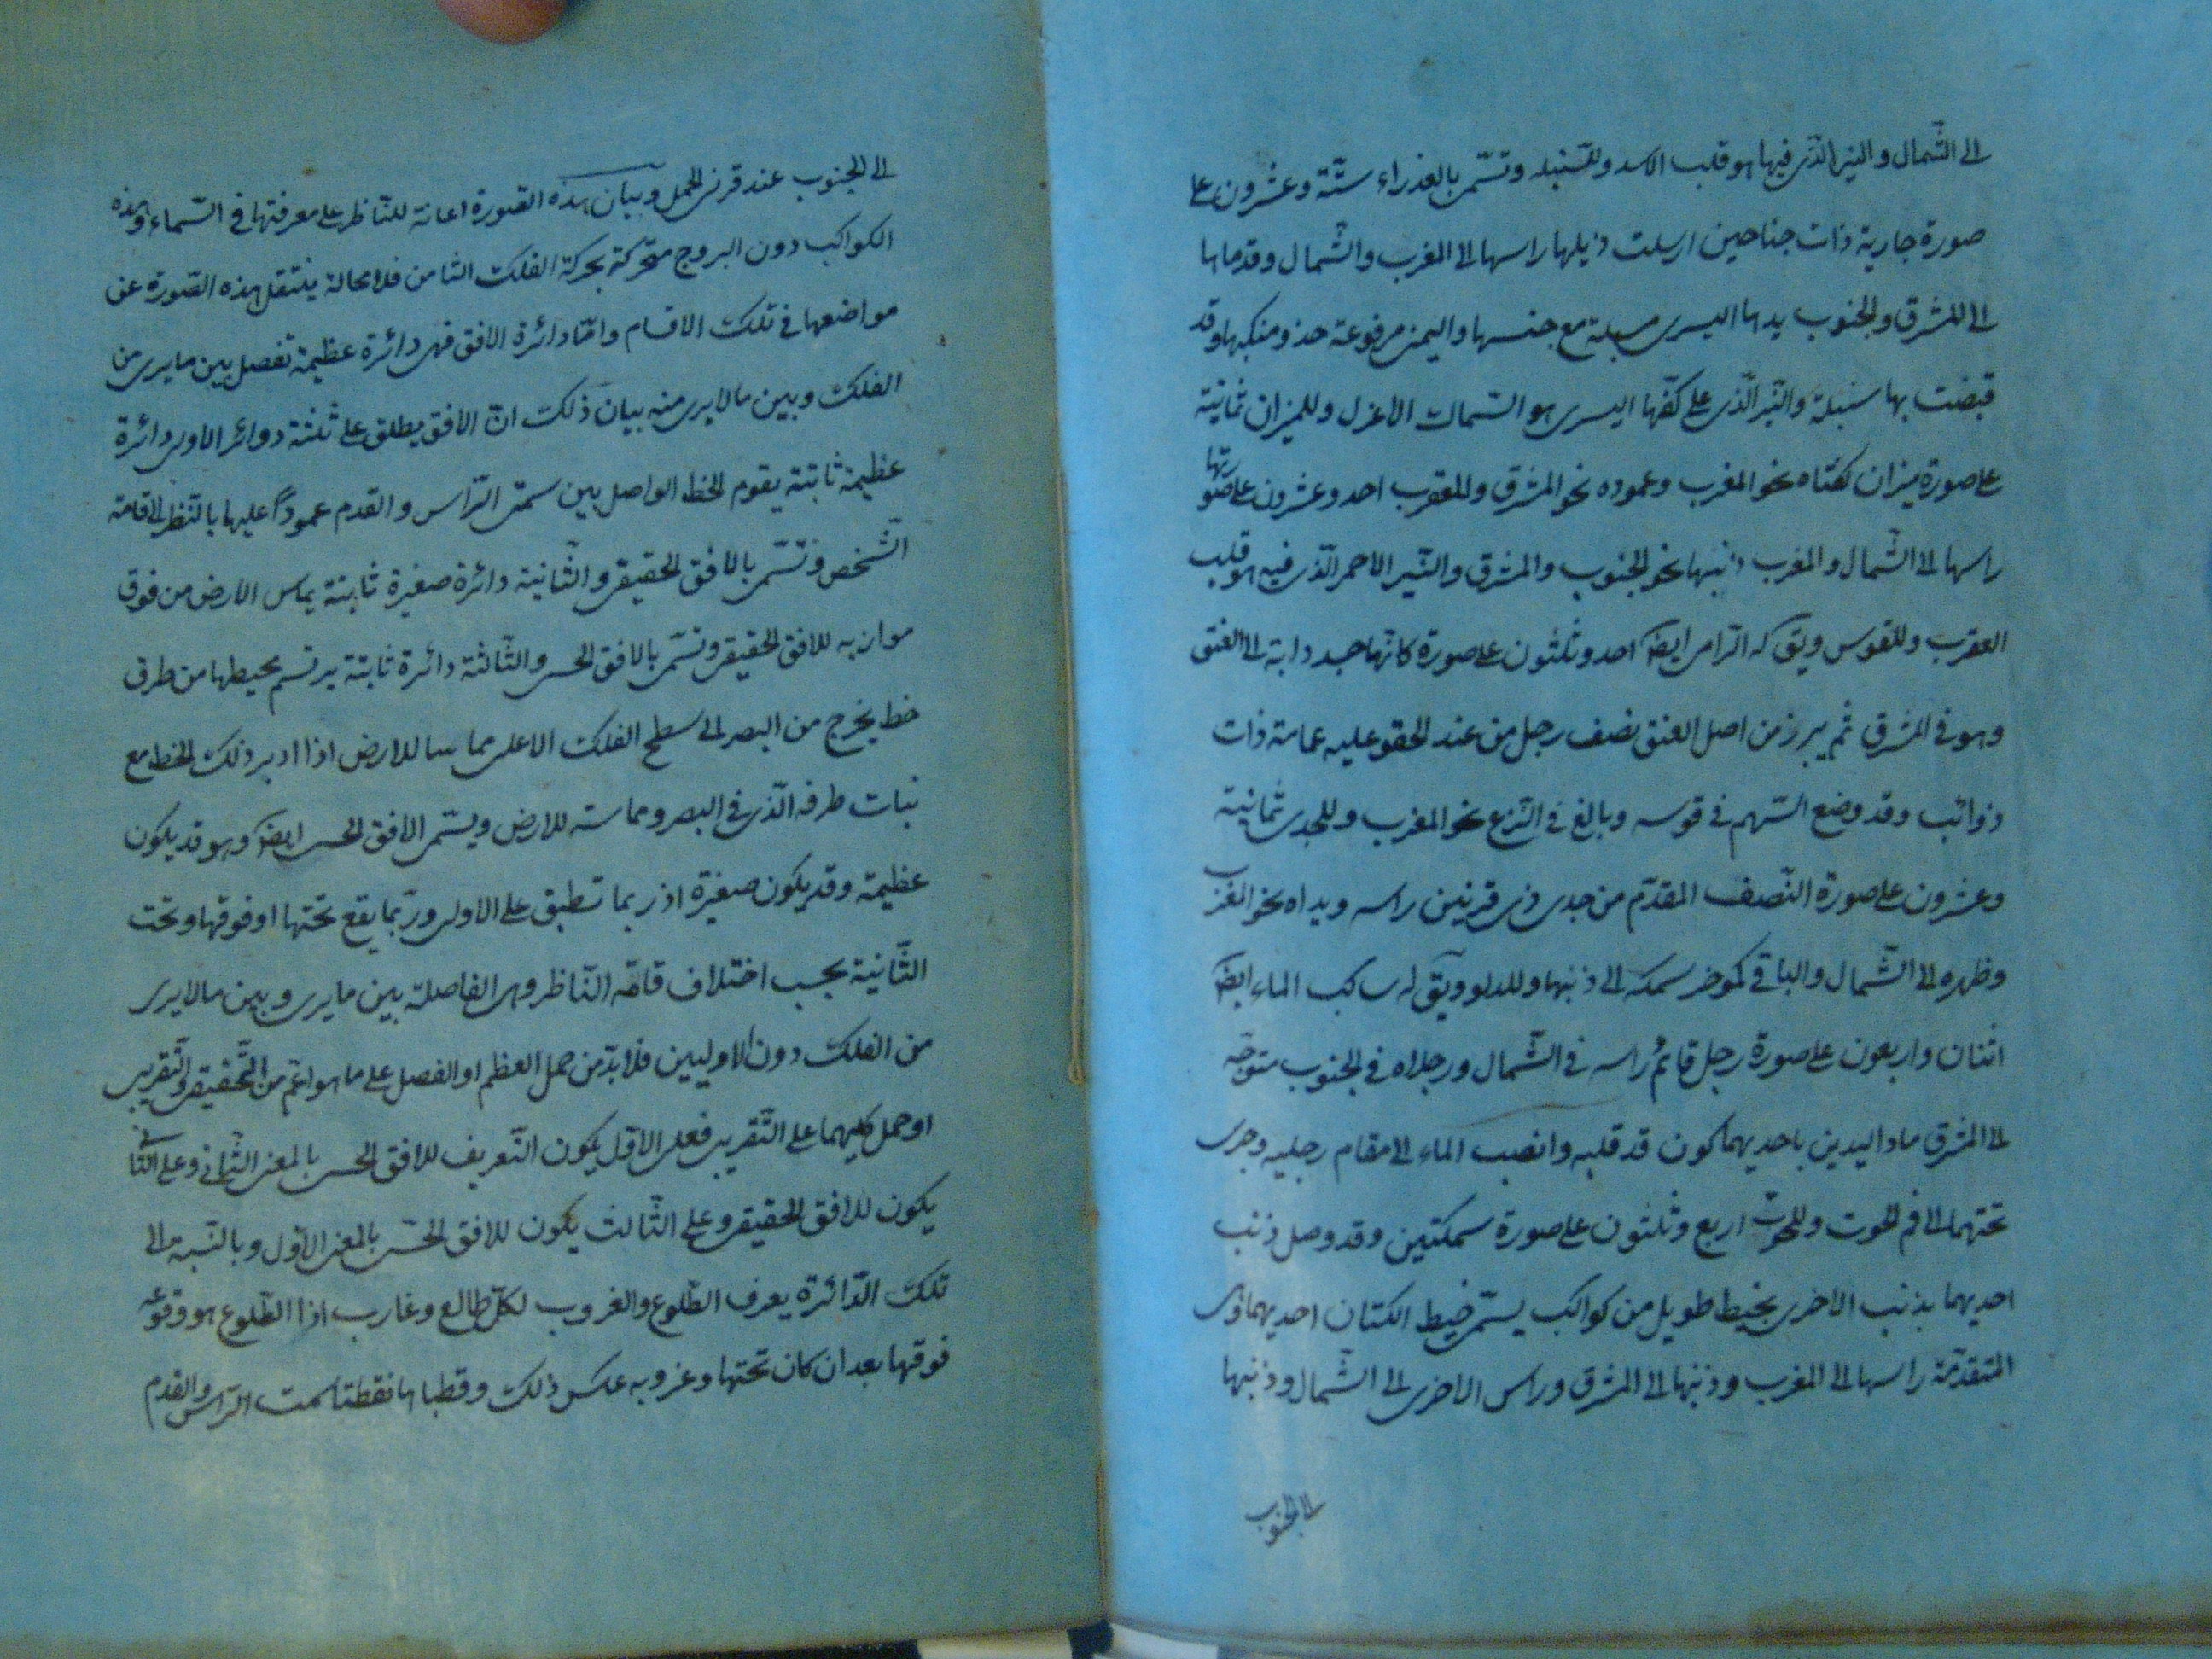 الى الشّمال والنير الذى فيها هو قلب الاسد وللسّنبله وتسمّى بالعذراء ستّة وعشرون على
صورة جارية ذات جناحين ارسلت ذيلها راسها الى المغرب والشّمال وقدماها
الى المشرق والجنوب يدها اليسرى مسبلة مع جنبها واليمنى مرفوعة حذو منكبها وقد
قبضت بها سنبلة والنّير الّذى على كفّها اليسرى هو السّماك الاعزل وللميزان ثمانية
على صورة ميزان كفّتاه نحو المغرب وعموده نحو المشرق وللعقرب احد وعشرون على صورتها
راسها الى الشّمال والمغرب ذنبها نحو الجنوب والمشرق والنّير الاحمر الّذى فيه هو قلب
العقرب وللقوس ويق له الرّامى ايضا احد وثلثون على صورة كانّها جسد دابة الى العنق
وهو فى المشرق ثم يبرز من اصل العنق نصف رجل من عند الحقو عليه عمامة ذات
ذوائب وقد وضع السّهم فى قوسه وبالغ فى النّزع نحو المغرب وللجدى ثمانية
وعشرون على صورة النّصف المقدّم من جدى ذى قرنين راسه ويداه نحو المغرب
وظهره الى الشّمال والباقى كموخر سمكة الى ذنبها وللدلو ويق له ساكب الماء ايضا
اثنان واربعون على صورة رجل قائم راسه فى الشّمال ورجلاه فى الجنوب متوجّه
الى المشرق ماد اليدين باحديهما كون قد قلبه وانصب الماء الى مقام رجليه وجرى
تحتهما الى فم الحوت وللحوت اربع وثلثون على صورة سمكتين وقد وصل ذنب
احديهما بذنب الاخرى بخيط طويل من كواكب يسمّى خيط الكتان احديهما وهى
المتقدّمة راسها الى المغرب وذنبها الى المشرق وراس الاخرى الى الشّمال وذنبها
الى الجنوب
الى الجنوب عند قرنى الحمل وبيان هذه الصّورة اعانة للنّاظر على معرفتها فى السّماء وهذه
الكواكب دون البروج متحركة بحركة الفلك الثامن فلا محالة ينتقل هذه الصّورة عن
مواضعها فى تلك الاقسام وامّا دائرة الافق فهى دائرة عظيمة تفصل بين ما يرى من
الفلك وبين ما لا يرى منه بيان ذلك انّ الافق يطلق على ثلثة دوائر الاولى دائرة
عظيمة ثابتة يقوم الخط الواصل بين سمتى الرّاس والقدم عموداً عليها بالنظر الى قامة
الشّخص وتسمّى بالافق الحقيقى والثّانية دائرة صغيرة ثابتة يماس الارض من فوق
موازية للافق الحقيقى وتسمّى بالافق الحسى والثّالثة دائرة ثابتة يرتسم محيطها من طرف
خط يخرج من البصر الى سطح الفلك الاعلى مماسا للارض اذا ادير ذلك الخط مع
ثبات طرفه الّذى فى البصر ومماسته للارض ويسمّى الافق الحسى ايضا وهو قد يكون
عظيمة وقد يكون صغيرة اذ ربما تنطبق على الاولى وربّما يقع تحتها او فوقها وتحت
الثّانية بحسب اختلاف قامة النّاظر وهى الفاصلة بين ما يرى وبين ما لا يرى
من الفلك دون الاوليين فلا بدّ من حمل العظم او الفصل على ما هو اعم من التّحقيقى والتّقريبى
او حمل كليهما على التّقريب فعلى الاوّل يكون التّعريف للافق الحسى بالمعنى الثّانى وعلى الثّانى
يكون للافق الحقيقى وعلى الثّالث يكون للافق الحسّى بالمعنى الاوّل وبالنّسبة الى
تلك الدّائرة يعرف الطّلوع والغروب لكلّ طالع وغارب اذ الطّلوع هو وقوعه
فوقها بعد ان كان تحتها وغروبه عكس ذلك وقطباها نقطتا سمت الرّاس والقدم